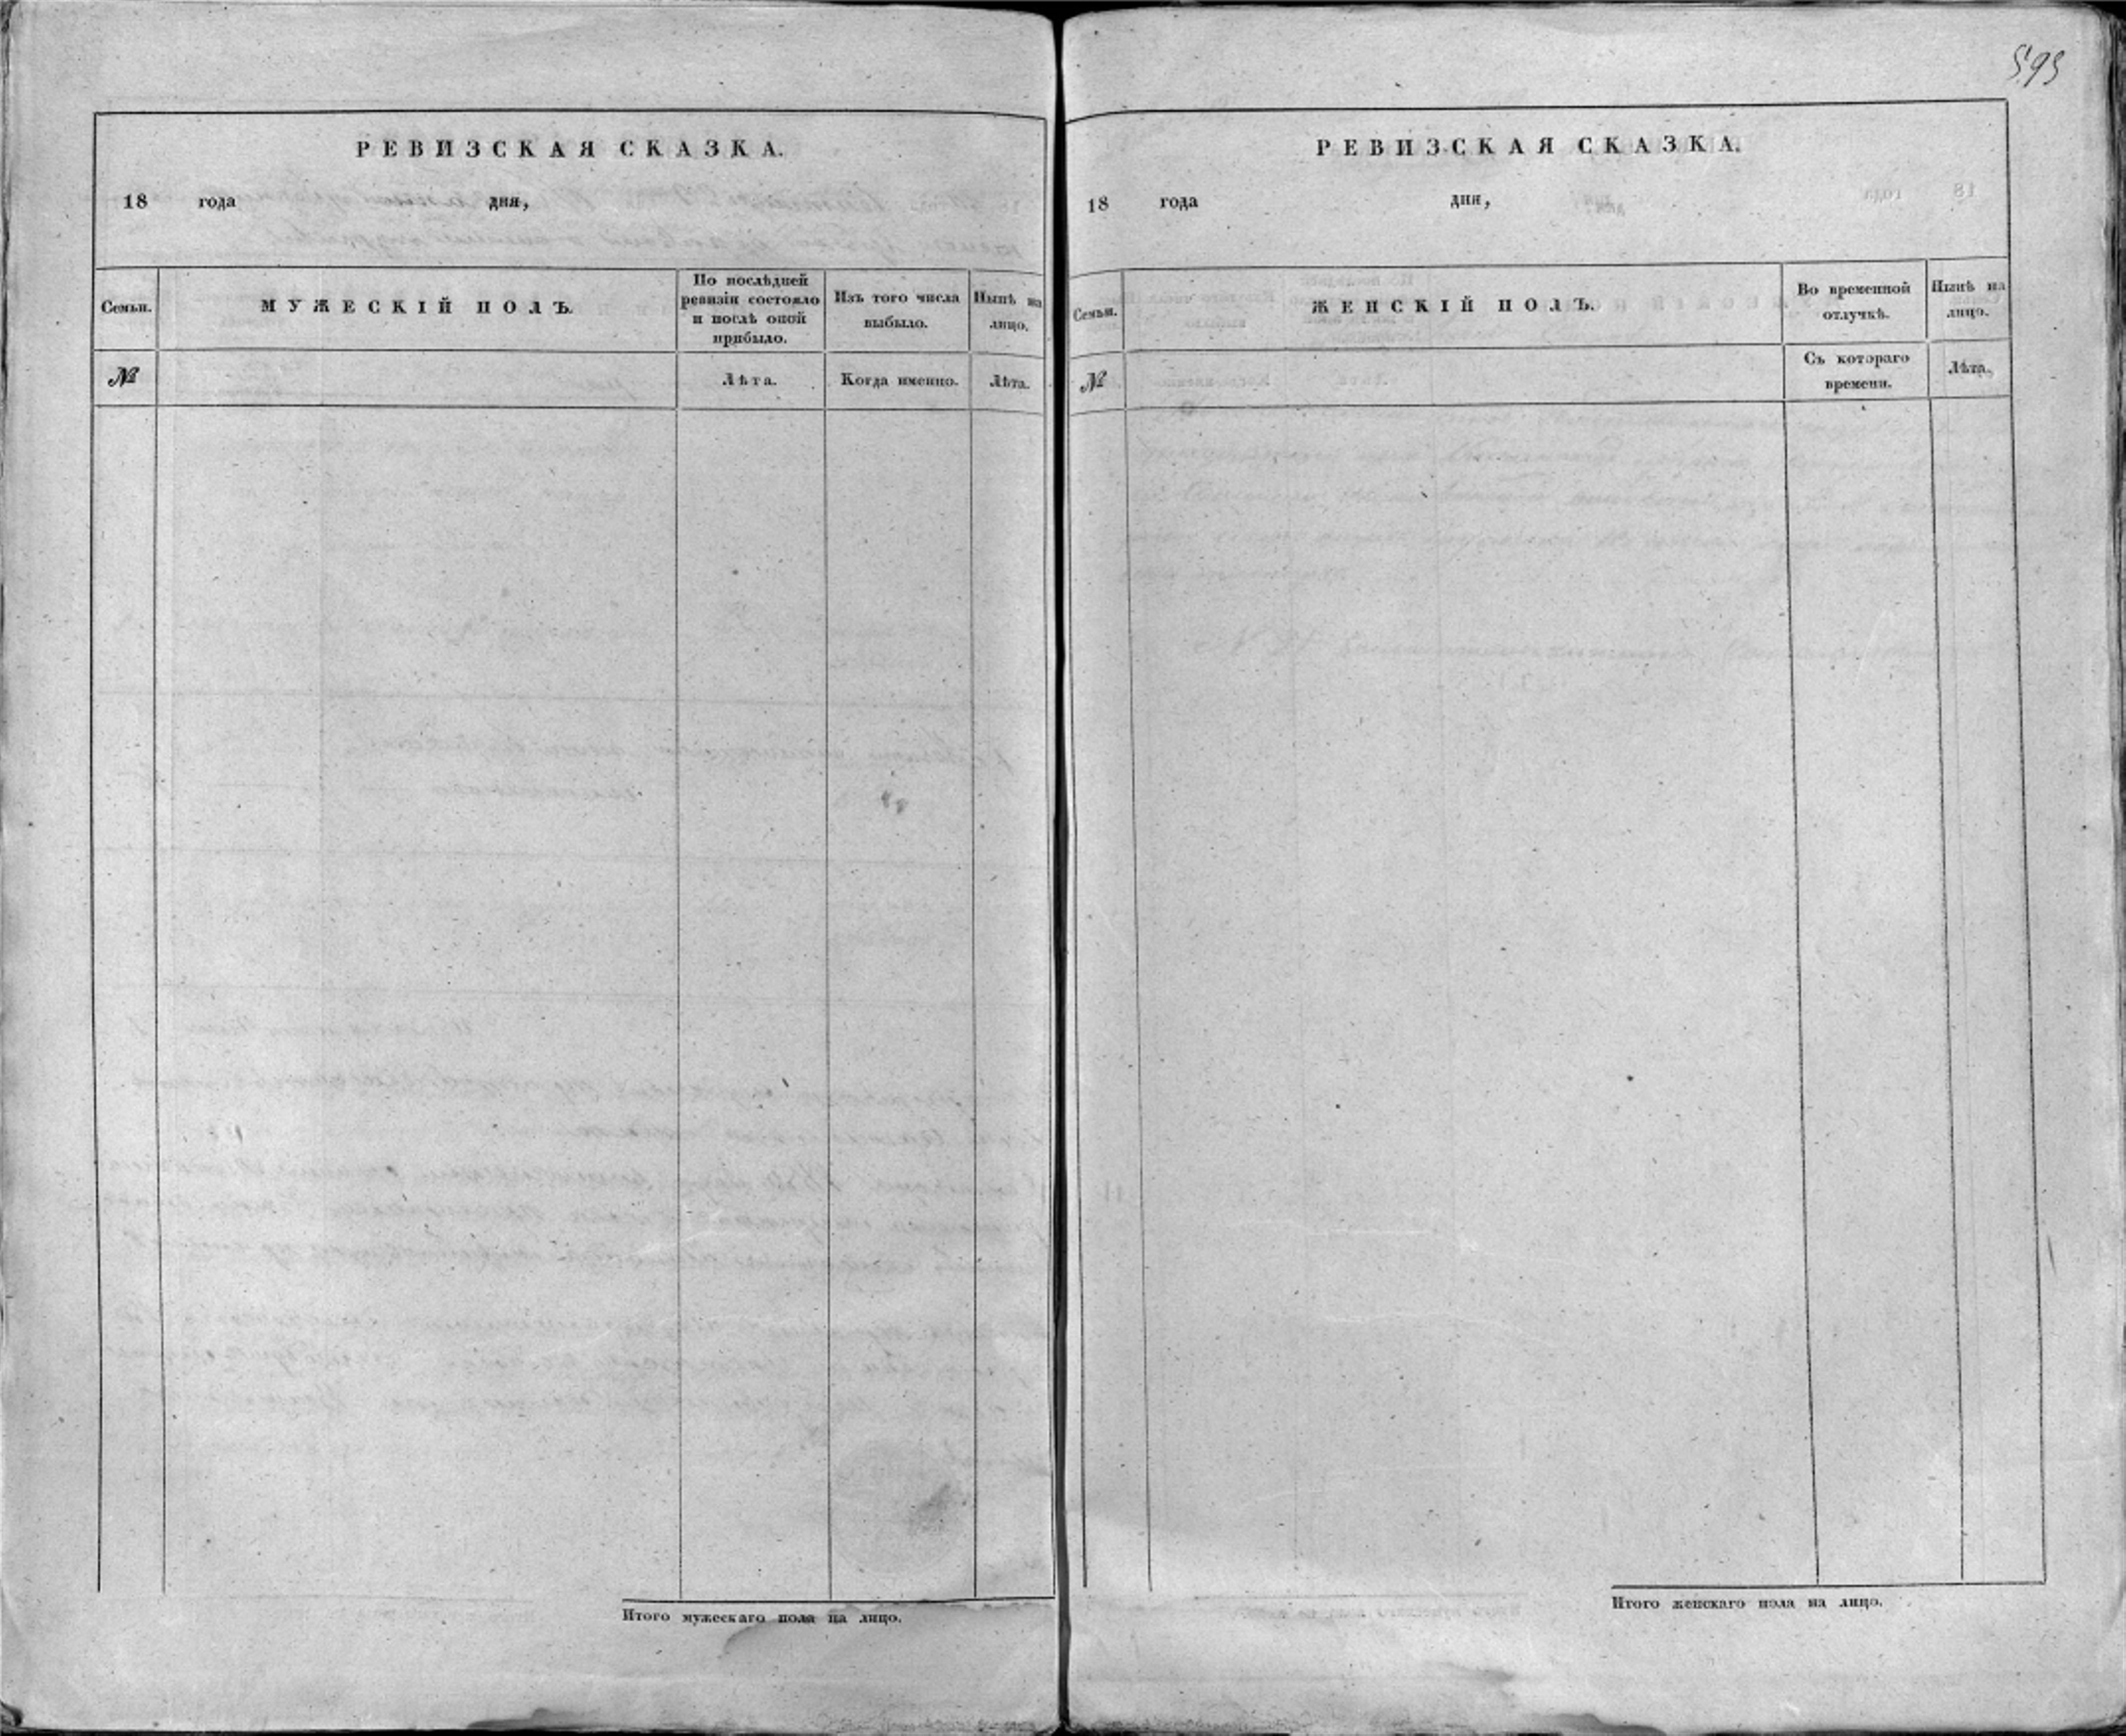 595
РЕВИЗСКАЯ СКАЗКА.
18 года дня,
Семьи.
МУЖЕСКІЙ ПОЛЪ.
По послѣдней
ревизіи состояло
и послѣ оной
прибыло.
Изъ того числа
выбыло.
Нынѣ на
лицо.
№
Лѣта.
Когда именно.
Лѣта.
Итого мужескаго пола на лицо.
РЕВИЗСКАЯ СКАЗКА.
18 года дня,
Семьи.
ЖЕНСКІЙ ПОЛЪ.
Во временной
отлучкѣ.
Нынѣ на
лицо.
№
Съ котораго
времени.
Лѣта.
Итого женскаго пола на лицо.